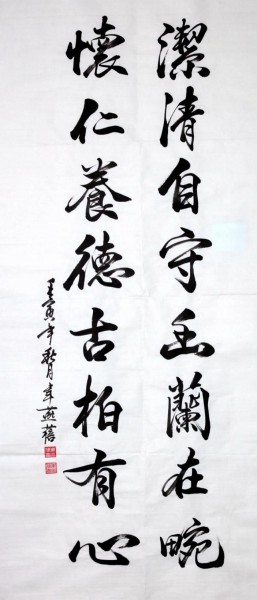 潔清自守幽蘭在畹
懷仁養德古柏有心
壬寅年秋月韋燕蓓